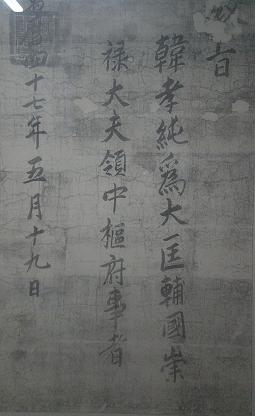 旨
韓孝純爲大匡輔國崇
禄大夫領中樞府事者
四十七年五月十九日